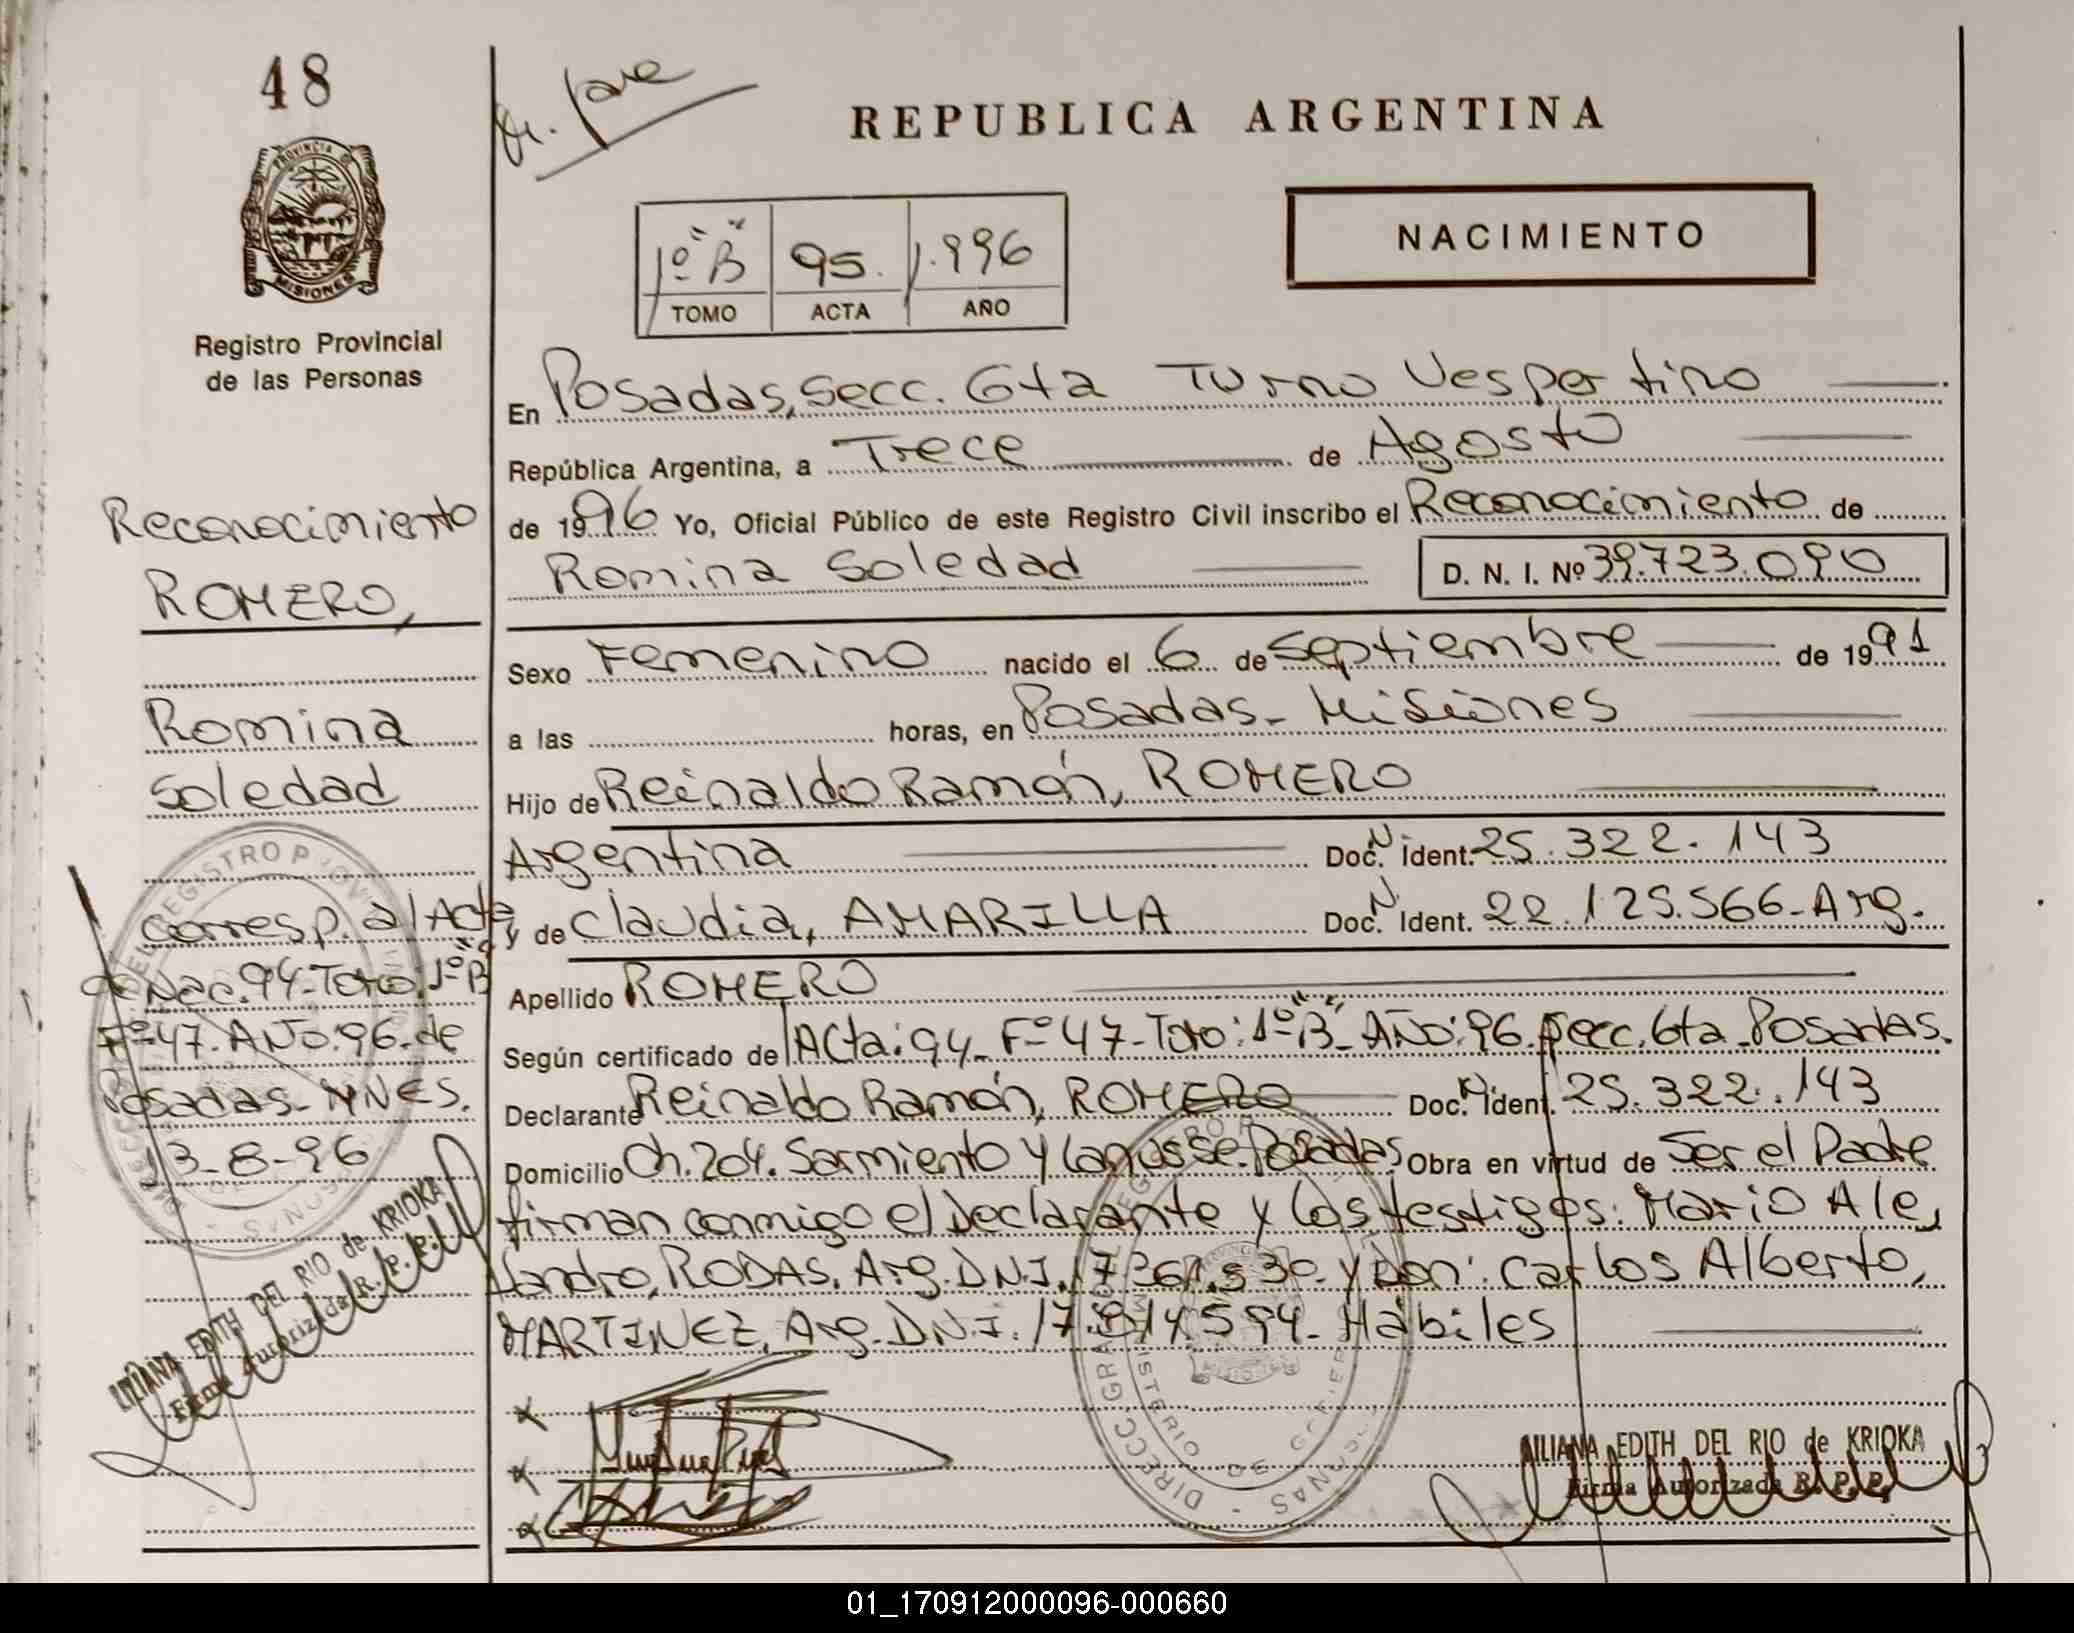 48
REPUBLICA ARGENTINA
PROVINCIA DE
MISIONES
Registro Provincial
de las Personas
1º "B" 95. 1.996
TOMO ACTA AÑO
NACIMIENTO
En Posadas, Secc. 6ta Turno Vespertino
República Argentina, a Trece de Agosto
de 1996 Yo, Oficial Público de este Registro Civil inscribo el Reconocimiento de
Romina Soledad D. N. I. Nº 39.723.090
Sexo Femenino nacido el 6 de Septiembre de 1991
a las horas, en Posadas - Misiones
Hijo de Reinaldo Ramón, ROMERO
Argentina Doc. N Ident. 25.322.143
y de Claudia, AMARILLA Doc. N Ident. 22.125.566-Arg.
Apellido ROMERO
Según certificado de Acta: 94-Fº 47-Tomo: 1º "B"-AÑO: 96. Secc. 6ta-Posadas.
Declarante Reinaldo Ramón, ROMERO Doc. N Ident. 25.322.143
Domicilio Ch. 204. Sarmiento y Lanusse. Posadas Obra en virtud de Ser el Padre
firman conmigo el Declarante y los testigos: Mario Ale,
jandro, RODAS, Arg. D.N.I. y Don: Carlos Alberto,
MARTINEZ, Arg. D.N.I. Hábiles
LILIANA EDITH DEL RIO de KRIOKA
Firma Autorizada R. P. P.
Reconocimiento
ROMERO,
Romina
Soledad
Corresp. al Acta
de Nac. 94-Tomo: 1º "B"
Fº 47. AÑO: 96. de
Posadas-MNES.
13-8-96
LILIANA EDITH DEL RIO de KRIOKA
Firma Autorizada R. P. P.
01_170912000096-000660